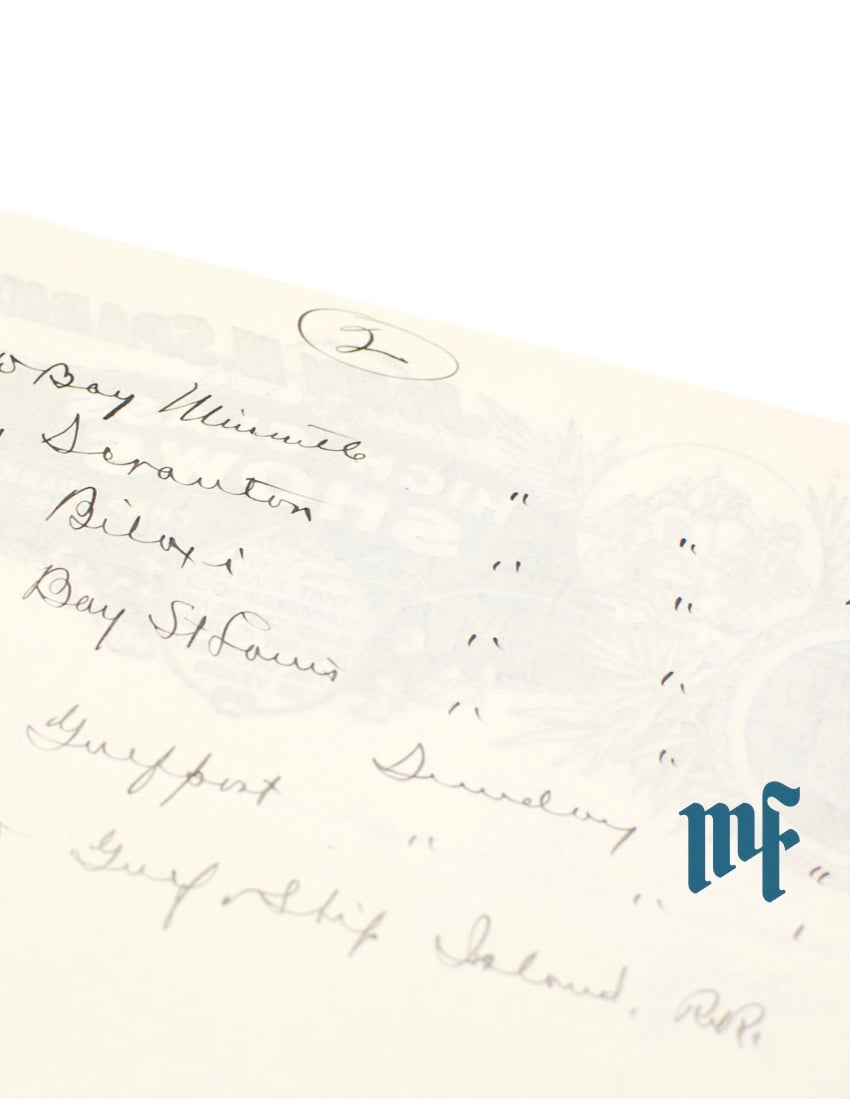 2
Bay Minette
Scranton " "
Biloxi " "
Bay St Louis " "
" "
Gulfport Sunday
" " "
Gulf & Ship Island, R.R.
mf